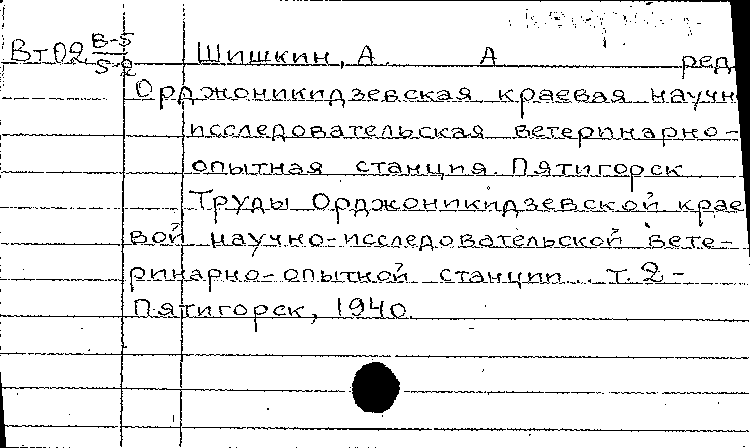 Вт02 В-5/5-2 Шишкин, А. А ред
Орджоникидзевская краевая научн
исследовательская ветеринарно-
опытная станция. Пятигорск
Труды Орджоникидзевской крае
вой научно-исследовательской вете-
ринарно-опытной станции.. т. 2 -
Пятигорск, 1940.